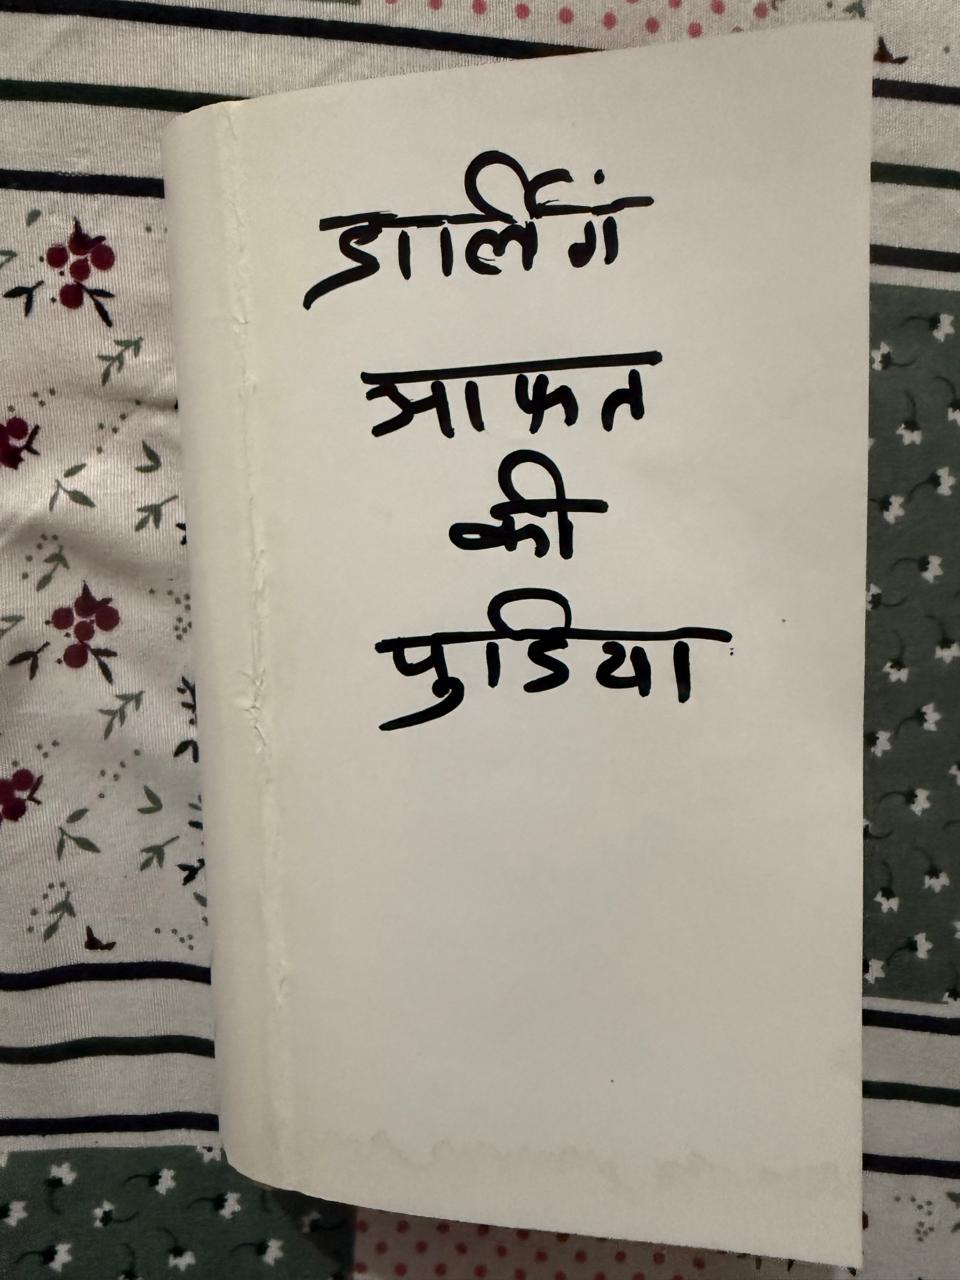 डार्लिंग
आफत
की
पुडिया